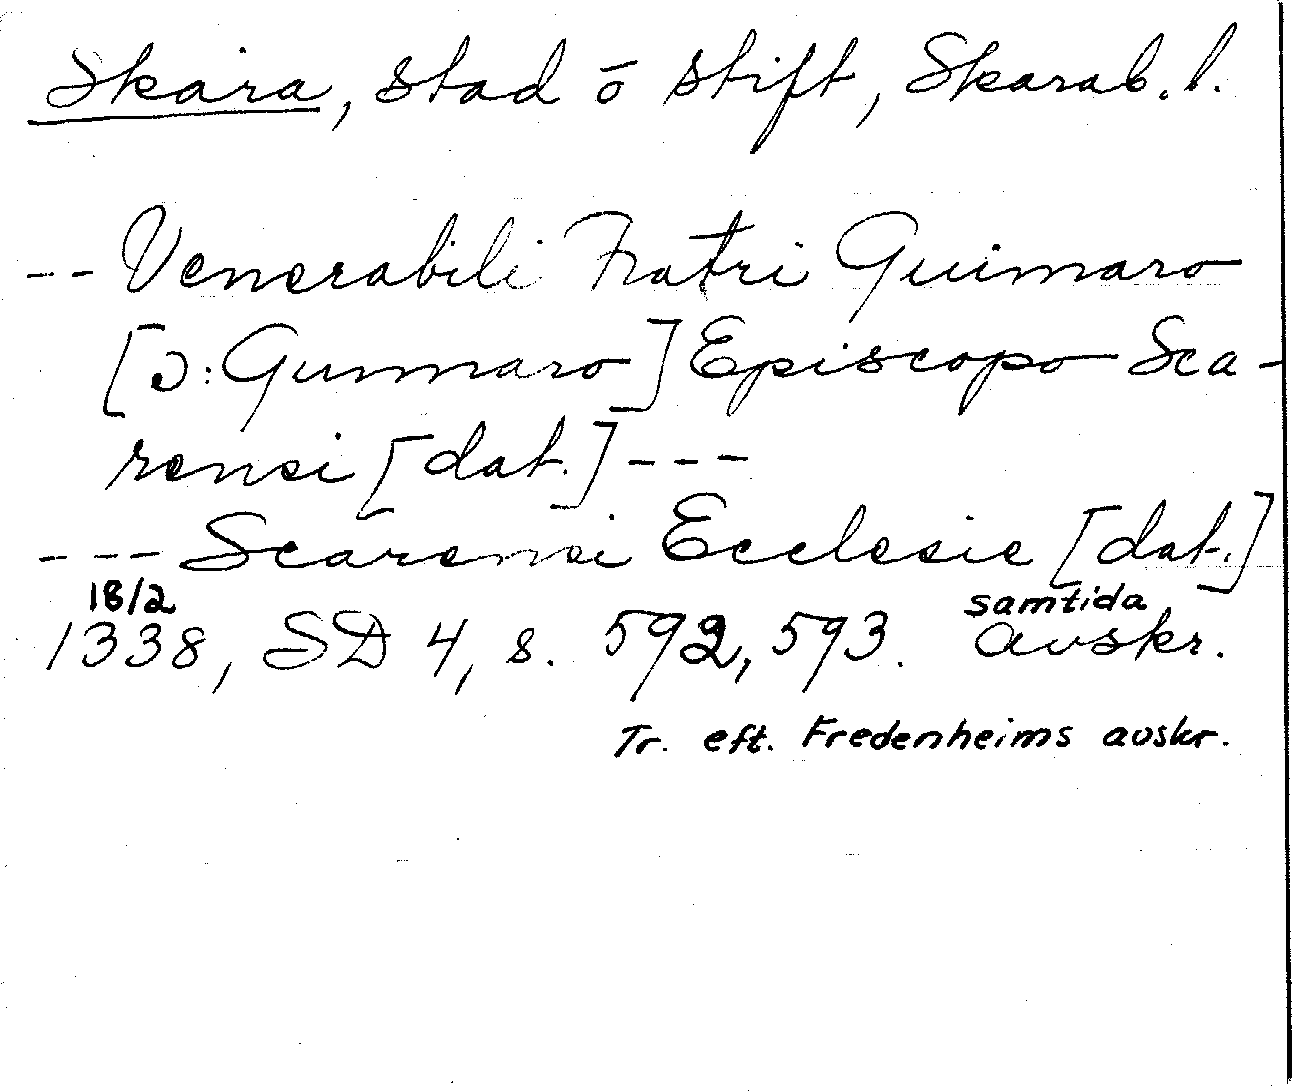 Skara, stad o stift, Skarab. l.
-- Venerabili Fratri Guimaro
[ɔ: Gunnaro] Episcopo Sca-
rensi [dat.] ---
--- Scarensi Ecclesie [dat.]
18/2
1338, SD 4, s. 592, 593. samtida avskr.
Tr. eft. Fredenheims avskr.